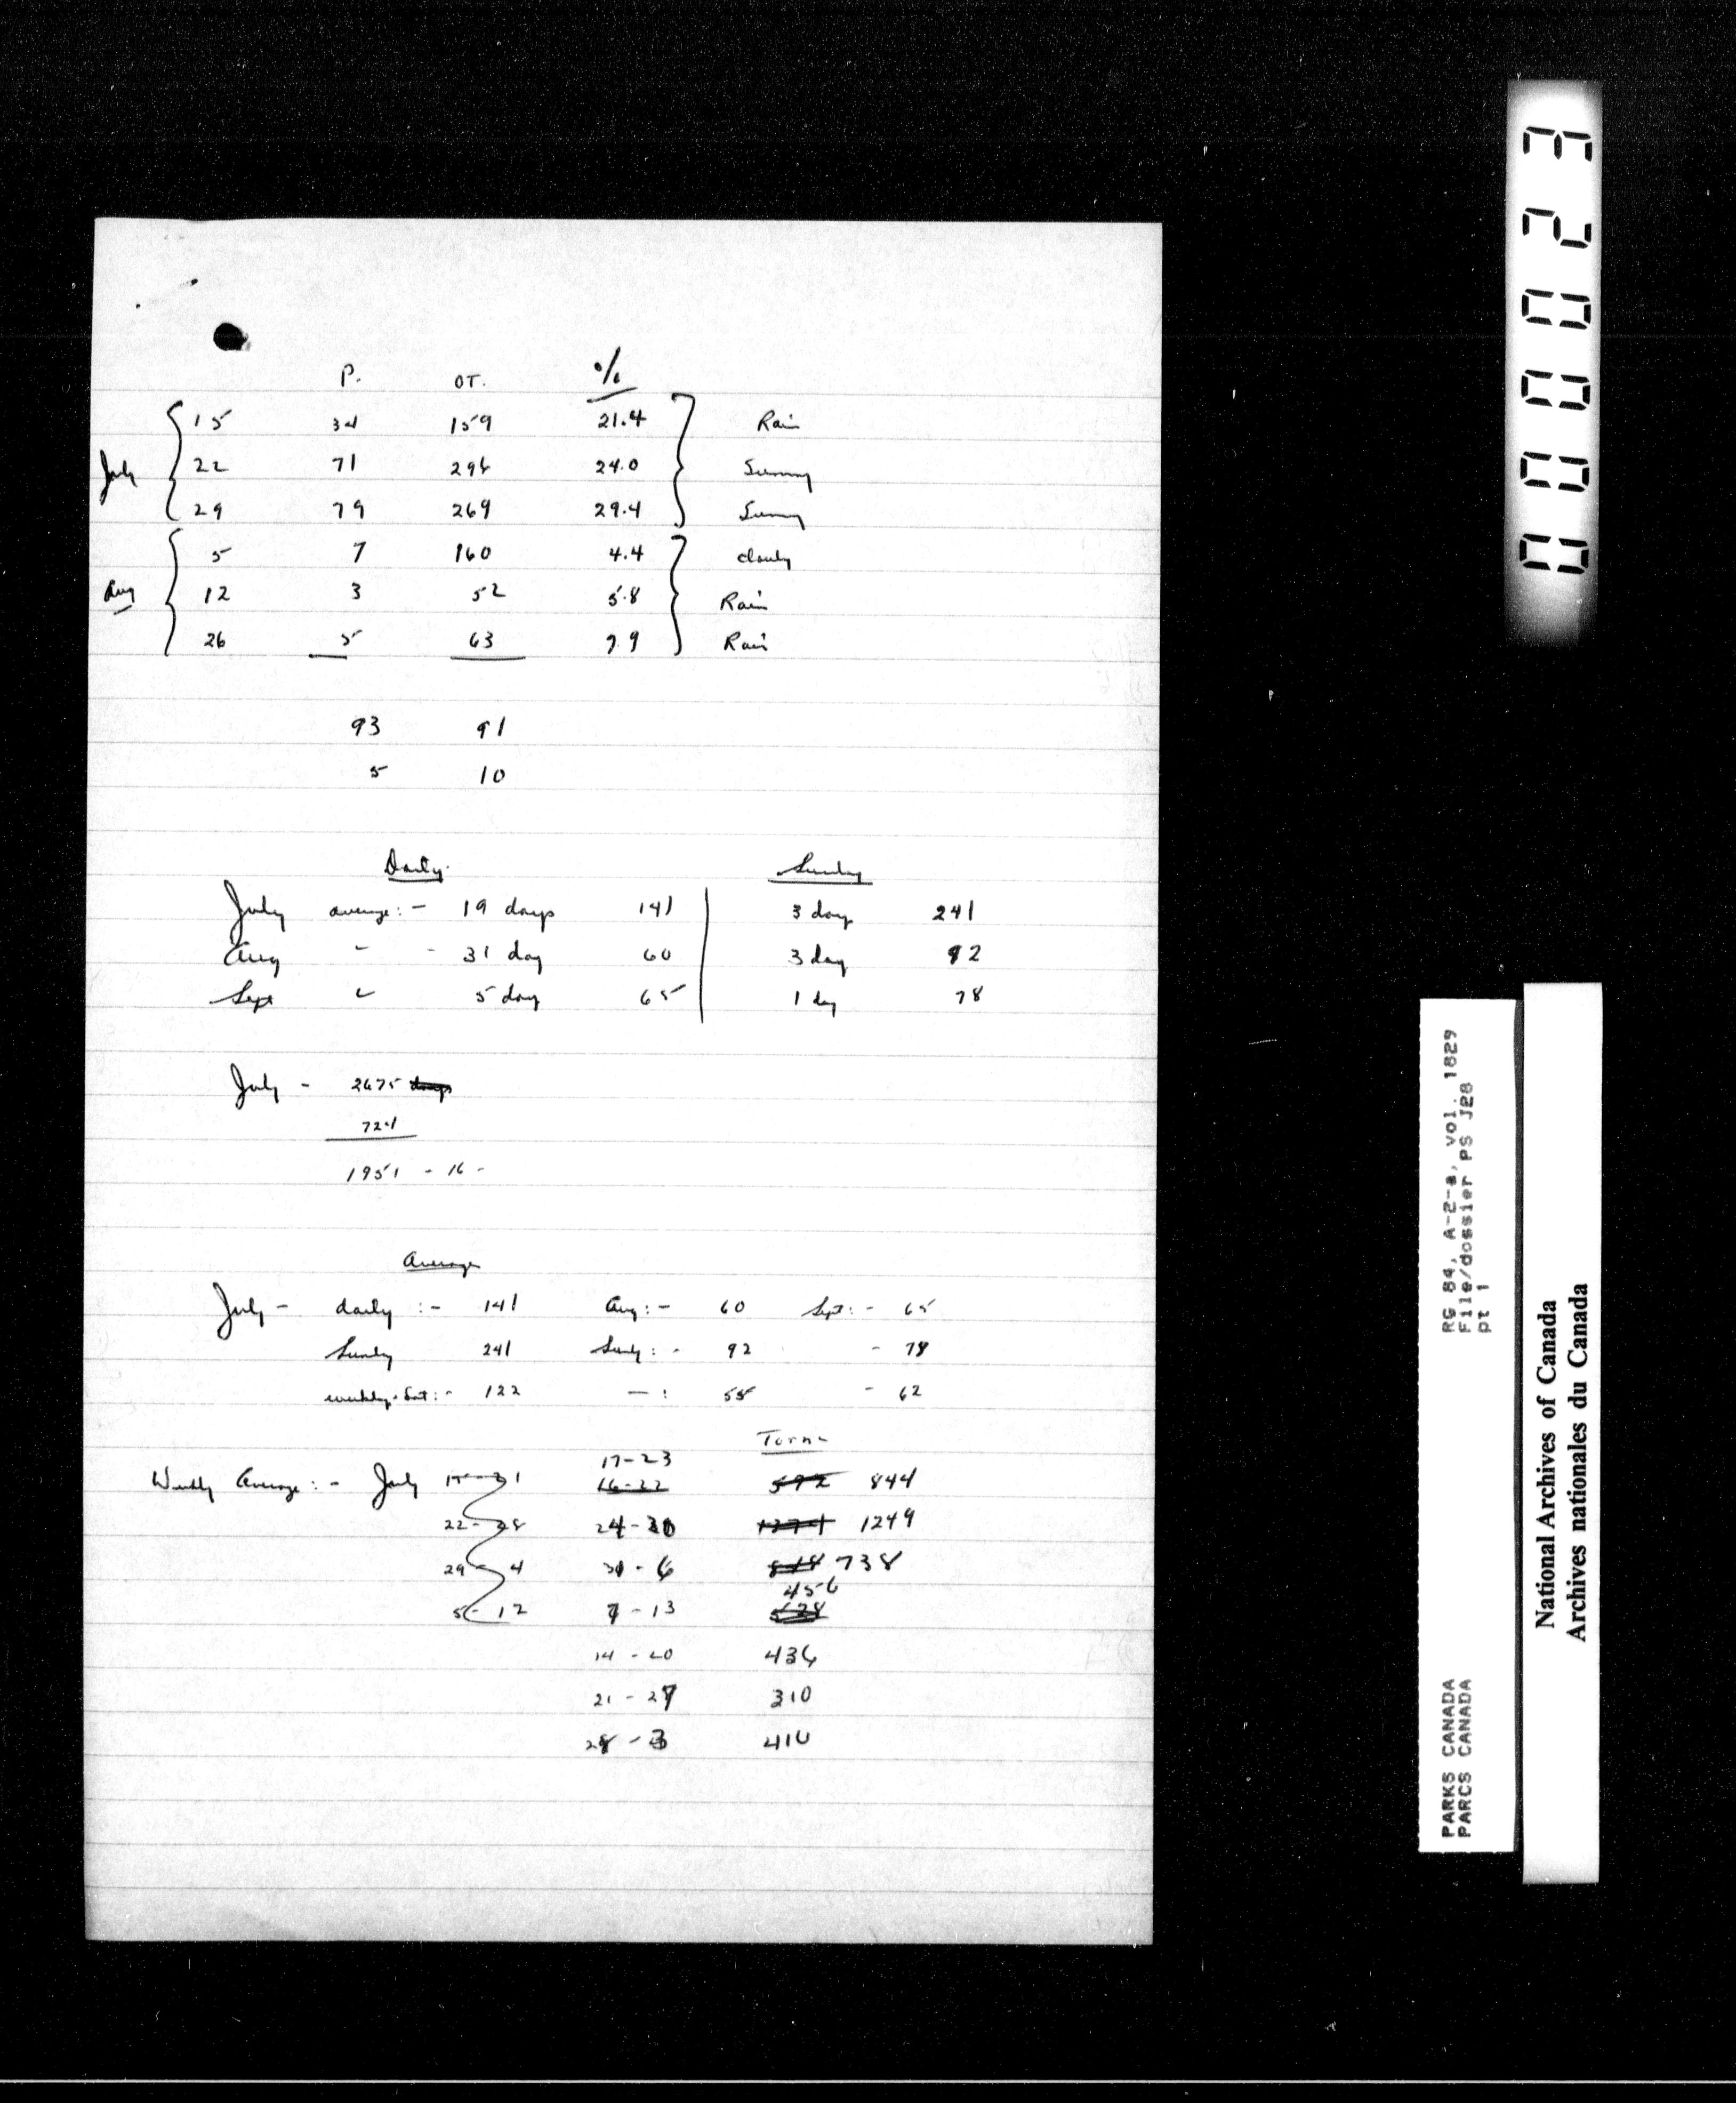 P. OT. %
15 34 159 21.4 Rain
July 22 71 296 24.0 Sunny
29 79 269 29.4 Sunny
5 7 160 4.4 cloudy
Aug 12 3 52 5.8 Rain
26 5 63 7.9 Rain
93 91
5 10
Daily Sunday
July average:- 19 days 141 3 day 241
Aug " - 31 day 60 3 day 92
Sept " 5 day 65 1 day 78
July - 2675 days
724
1951 - 16 -
Average
July - daily :- 141 Aug:- 60 Sept:- 65
Sunday 241 Sundy:- 92 - 78
weekly-Sat:- 122 — : 55 - 62
17-23
Weekly Average:- July 15-31 16-22 592 844
22-28 24-30 1249
29-4 31-6 818 738
456
5-12 7-13 528
14-20 436
21-27 310
28-3 410
000023
RG 84, A-2-a, vol. 1829
File/dossier PS J28
pt 1
PARKS CANADA
PARCS CANADA
National Archives of Canada
Archives nationales du Canada